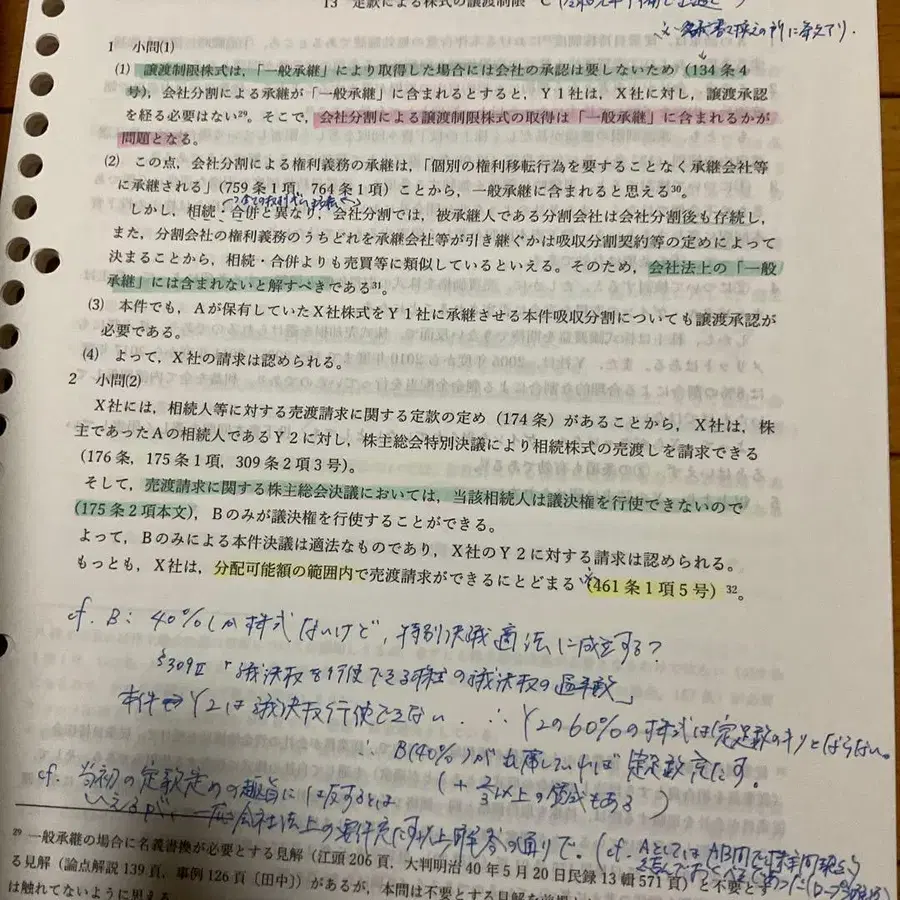 13 定款による株式の譲渡制限
1 小問(1)
(1) 譲渡制限株式は,「一般承継」により取得した場合には会社の承認は要しないため(134条4
号),会社分割による承継が「一般承継」に含まれるとすると,Y1社は,X社に対し,譲渡承認
を経る必要はない²⁹。そこで,会社分割による譲渡制限株式の取得は「一般承継」に含まれるかが
問題となる。
(2) この点,会社分割による権利義務の承継は,「個別の権利移転行為を要することなく承継会社等
に承継される」(759条1項,764条1項)ことから,一般承継に含まれると思える³⁰。
しかし,相続・合併と異なり,会社分割では,被承継人である分割会社は会社分割後も存続し,
また,分割会社の権利義務のうちどれを承継会社等が引き継ぐかは吸収分割契約等の定めによって
決まることから,相続・合併よりも売買等に類似しているといえる。そのため,会社法上の「一般
承継」には含まれないと解すべきである³¹。
(3) 本件でも,Aが保有していたX社株式をY1社に承継させる本件吸収分割についても譲渡承認が
必要である。
(4) よって,X社の請求は認められる。
2 小問(2)
X社には,相続人等に対する売渡請求に関する定款の定め(174条)があることから,X社は,株
主であったAの相続人であるY2に対し,株主総会特別決議により相続株式の売渡しを請求できる
(176条,175条1項,309条2項3号)。
そして,売渡請求に関する株主総会決議においては,当該相続人は議決権を行使できないので
(175条2項本文),Bのみが議決権を行使することができる。
よって,Bのみによる本件決議は適法なものであり,X社のY2に対する請求は認められる。
もっとも,X社は,分配可能額の範囲内で売渡請求ができるにとどまる(461条1項5号)³²。
cf. B: 40%しか株式ないけど,特別決議適法に成立する?
§309Ⅱ「議決権を行使できる株主の議決権の過半数」
本件 Y2は議決権行使できない.∴Y2の60%の株式は定足数の ならない。
∴B(40%)が出席していれば定足数充たす。
(+2/3以上の賛成もある)
cf. 当初の定款定めの趣旨には反するとは
いえるが, 会社法上の要件充たす以上解答の通りで。(cf. Aとしては AB間で
29 一般承継の場合に名義書換が必要とする見解(江頭206頁,大判明治40年5月20日民録13輯571頁)と不要とす
る見解(論点解説139頁,事例126頁〔田中〕)があるが,本問は不要とする見解を
は触れてないように思える。